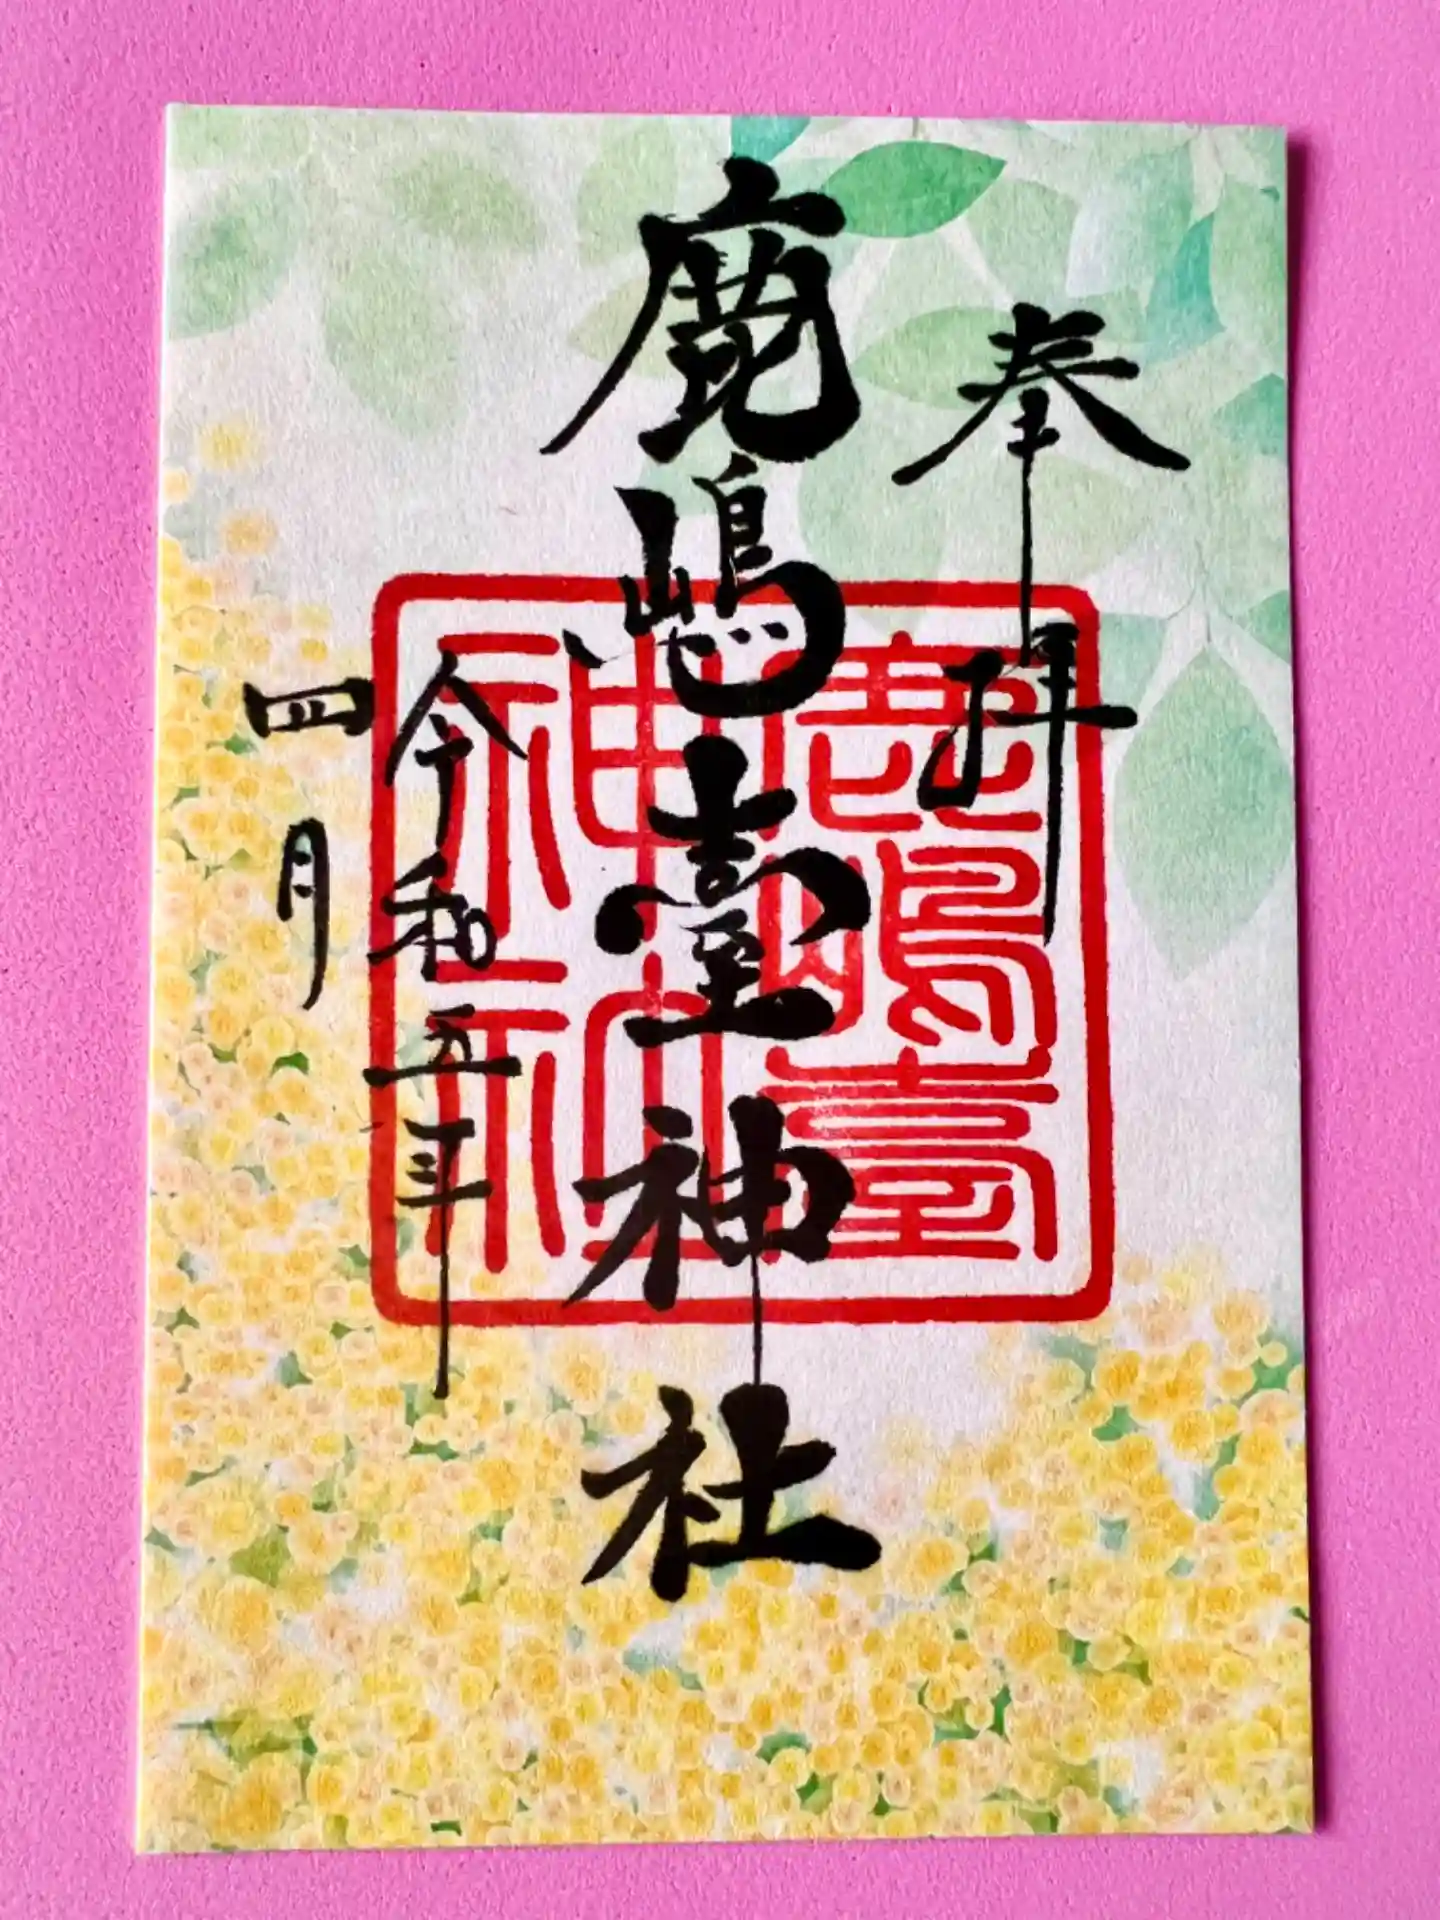 奉拝
鹿嶋臺神社
令和五年
四月
鹿嶋臺
神社